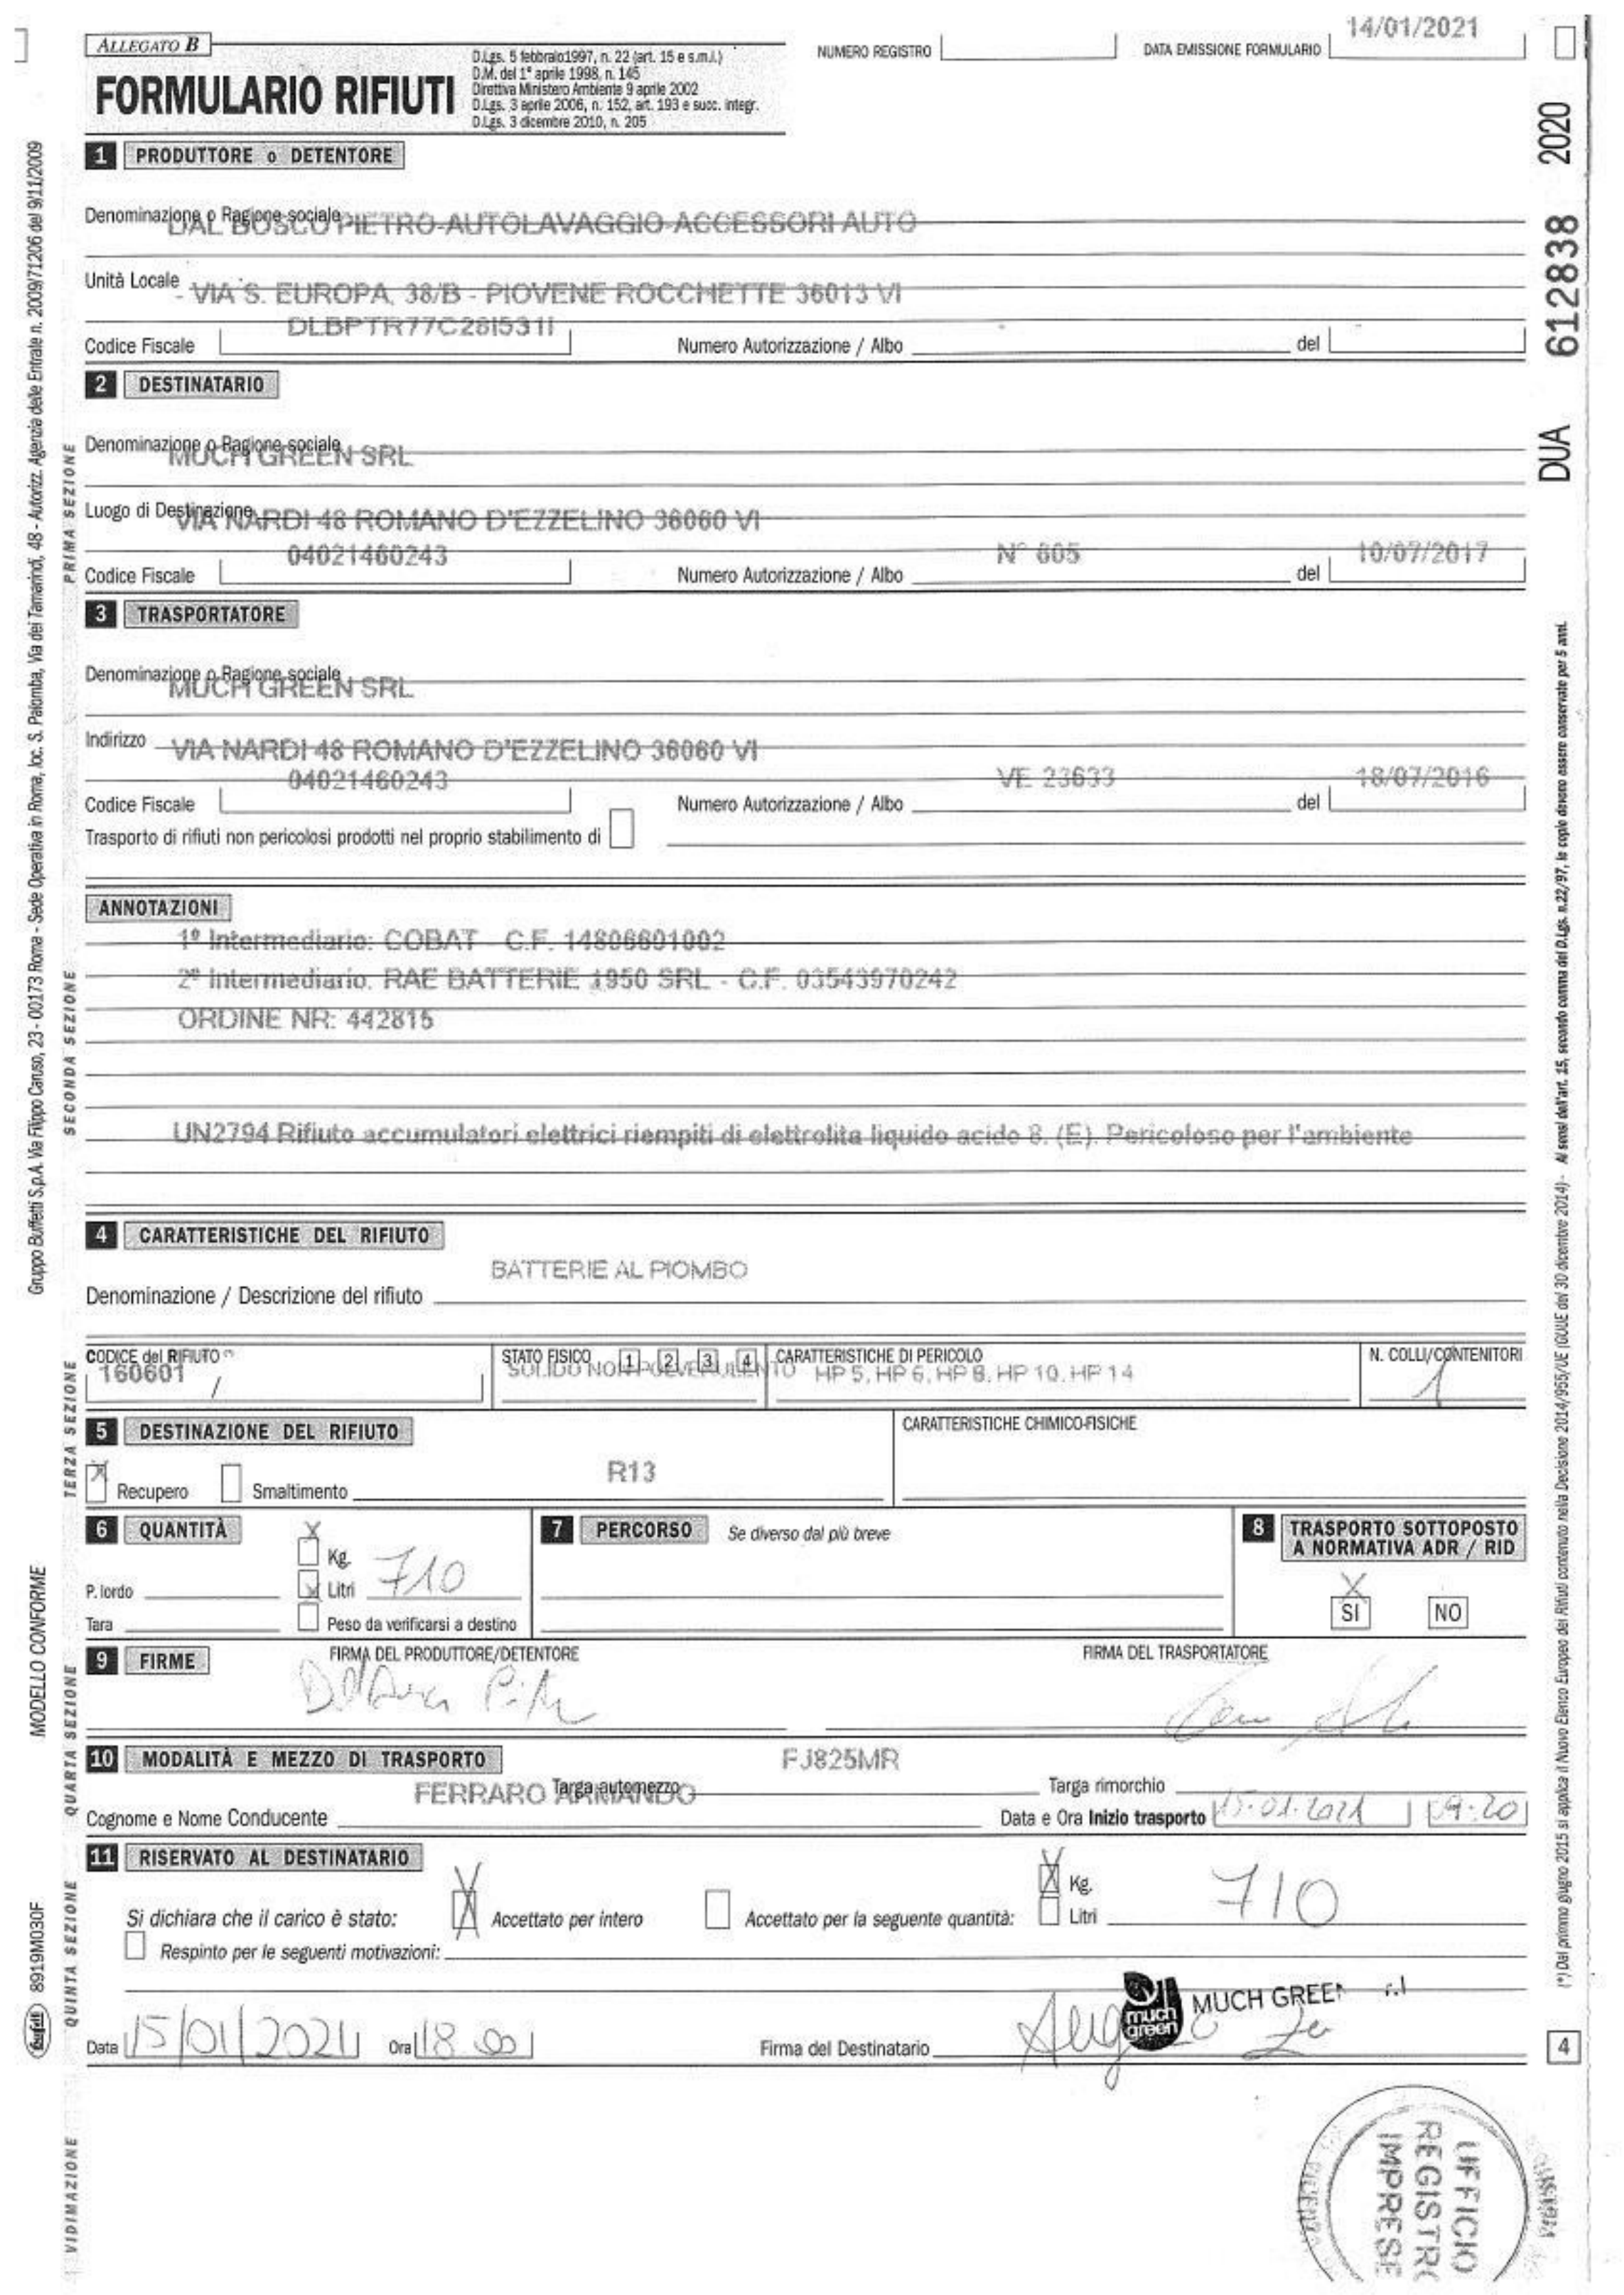 ALLEGATO B
FORMULARIO RIFIUTI
D.Lgs. 5 febbraio1997, n. 22 (art. 15 e s.m.i.)
D.M. del 1° aprile 1998, n. 145
Direttiva Ministero Ambiente 9 aprile 2002
D.Lgs. 3 aprile 2006, n. 152, art. 193 e succ. integr.
D.Lgs. 3 dicembre 2010, n. 205
NUMERO REGISTRO
DATA EMISSIONE FORMULARIO 14/01/2021
DUA 612838 2020
1 PRODUTTORE o DETENTORE
Denominazione o Ragione sociale DAL BOSCO PIETRO AUTOLAVAGGIO ACCESSORI AUTO
Unità Locale - VIA S. EUROPA, 38/B - PIOVENE ROCCHETTE 36013 VI
Codice Fiscale DLBPTR77C28I531I Numero Autorizzazione / Albo del
2 DESTINATARIO
Denominazione o Ragione sociale MUCH GREEN SRL
Luogo di Destinazione VIA NARDI 48 ROMANO D'EZZELINO 36060 VI
Codice Fiscale 04021460243 Numero Autorizzazione / Albo N° 805 del 10/07/2017
3 TRASPORTATORE
Denominazione o Ragione sociale MUCH GREEN SRL
Indirizzo VIA NARDI 48 ROMANO D'EZZELINO 36060 VI
Codice Fiscale 04021460243 Numero Autorizzazione / Albo VE 23633 del 18/07/2016
Trasporto di rifiuti non pericolosi prodotti nel proprio stabilimento di
ANNOTAZIONI
1° Intermediario: COBAT - C.F. 14806601002
2° Intermediario. RAE BATTERIE 1950 SRL - C.F. 03543970242
ORDINE NR: 442815
UN2794 Rifiuto accumulatori elettrici riempiti di elettrolita liquido acido 8. (E). Pericoloso per l'ambiente
4 CARATTERISTICHE DEL RIFIUTO
Denominazione / Descrizione del rifiuto BATTERIE AL PIOMBO
CODICE del RIFIUTO (*) 160601 /
STATO FISICO 1 2 3 4 SOLIDO NON POLVERULENTO
CARATTERISTICHE DI PERICOLO HP 5, HP 6, HP 8, HP 10, HP 14
N. COLLI/CONTENITORI 1
5 DESTINAZIONE DEL RIFIUTO
CARATTERISTICHE CHIMICO-FISICHE
X Recupero Smaltimento R13
6 QUANTITÀ
X Kg. 710
P. lordo X Litri
Tara Peso da verificarsi a destino
7 PERCORSO Se diverso dal più breve
8 TRASPORTO SOTTOPOSTO A NORMATIVA ADR / RID
X SI NO
9 FIRME
FIRMA DEL PRODUTTORE/DETENTORE
FIRMA DEL TRASPORTATORE
10 MODALITÀ E MEZZO DI TRASPORTO
Targa automezzo FJ825MR Targa rimorchio
Cognome e Nome Conducente FERRARO ARMANDO Data e Ora Inizio trasporto 15.01.2021 09:20
11 RISERVATO AL DESTINATARIO
Si dichiara che il carico è stato: X Accettato per intero Accettato per la seguente quantità: X Kg. Litri 710
Respinto per le seguenti motivazioni:
Data 15/01/2021 Ora 18 00 Firma del Destinatario
much green
MUCH GREEN
4
UFFICIO
REGISTRO
IMPRESE
Gruppo Buffetti S.p.A. Via Filippo Caruso, 23 - 00173 Roma - Sede Operativa in Roma, loc. S. Palomba, Via dei Tamarindi, 48 - Autorizz. Agenzia delle Entrate n. 2009/71206 del 9/11/2009
MODELLO CONFORME
buffetti 8919M030F
PRIMA SEZIONE
SECONDA SEZIONE
TERZA SEZIONE
QUARTA SEZIONE
QUINTA SEZIONE
VIDIMAZIONE
(*) Dal primo giugno 2015 si applica il Nuovo Elenco Europeo dei Rifiuti contenuto nella Decisione 2014/955/UE (GUUE del 30 dicembre 2014) - Ai sensi dell'art. 15, secondo comma del D.Lgs. n.22/97, le copie devono essere conservate per 5 anni.